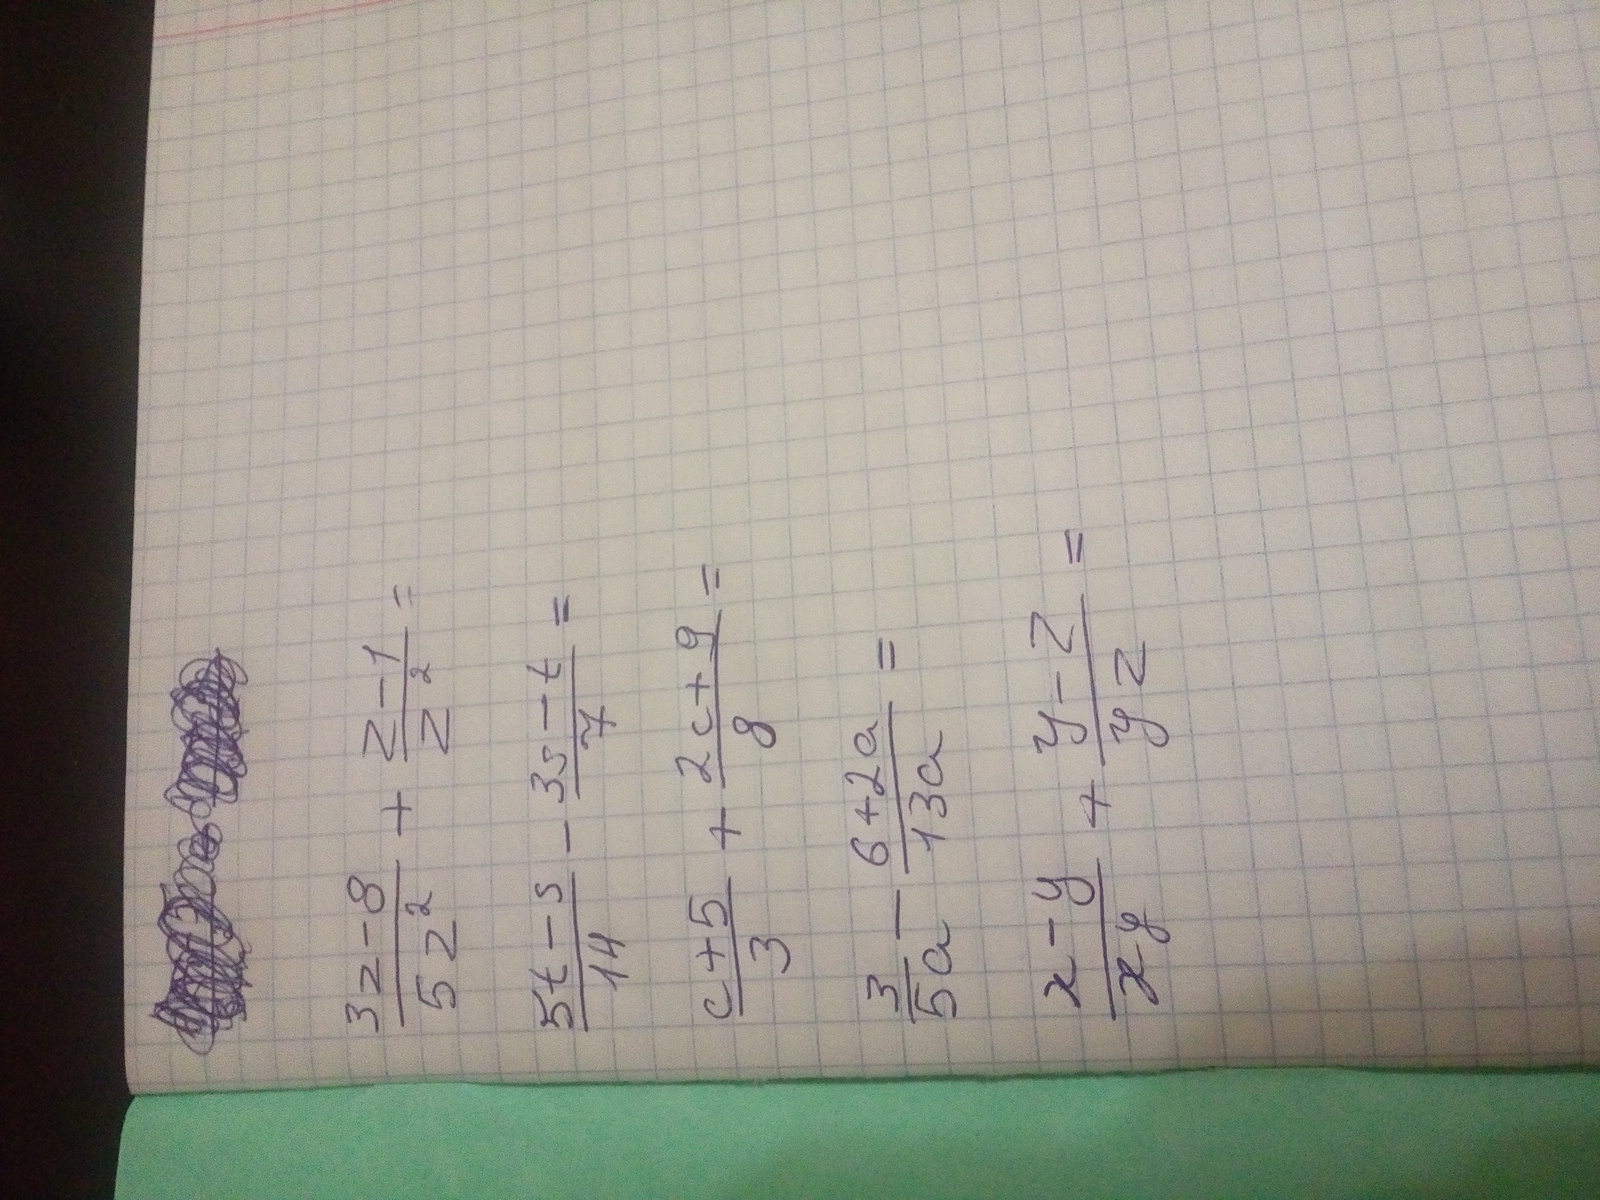 (3z-8)/(5z²) + (z-1)/(z²) =
(5t-s)/14 - (3s-t)/7 =
(c+5)/3 + (2c+9)/8 =
3/(5a) - (6+2a)/(13a) =
(x-y)/(xy) + (y-z)/(yz) =